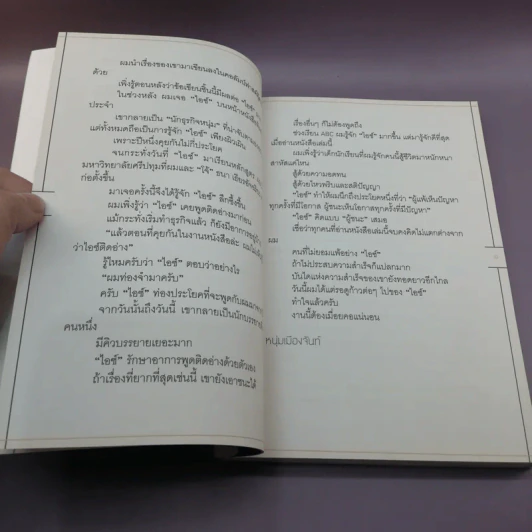 ผมนำเรื่องของเขามาเขียนลงในคอลัมน์
ด้วย
เพิ่งรู้ตอนหลังว่าข้อเขียนชิ้นนี้มีผลต่อ "ไอซ์"
ในช่วงหลัง ผมเจอ "ไอซ์" บนหน้าหนังสือ
ประจำ
เขากลายเป็น "นักธุรกิจหนุ่ม" ที่น่าจับตา
แต่ทั้งหมดถือเป็นการรู้จัก "ไอซ์" เพียงผิวเผิน
เพราะปีหนึ่งคุยกันไม่กี่ประโยค
จนกระทั่งวันที่ "ไอซ์" มาเรียนหลักสูตร
มหาวิทยาลัยศรีปทุมที่ผมและ "โจ้" ธนา เธียรอัจฉริยะ
ก่อตั้งขึ้น
มาเจอครั้งนี้จึงได้รู้จัก "ไอซ์" ลึกซึ้งขึ้น
ผมเพิ่งรู้ว่า "ไอซ์" เคยพูดติดอ่างมาก่อน
แม้กระทั่งเริ่มทำธุรกิจแล้ว ก็ยังมีอาการอยู่บ้าง
"แล้วตอนที่คุยกันในงานหนังสือล่ะ ผมไม่
ว่าไอซ์ติดอ่าง"
รู้ไหมครับว่า "ไอซ์" ตอบว่าอย่างไร
"ผมท่องจำมาครับ"
ครับ "ไอซ์" ท่องประโยคที่จะพูดกับผม
จากวันนั้นถึงวันนี้ เขากลายเป็นนักบรรยาย
คนหนึ่ง
มีคิวบรรยายเยอะมาก
"ไอซ์" รักษาอาการพูดติดอ่างด้วยตัวเอง
ถ้าเรื่องที่ยากที่สุดเช่นนี้ เขายังเอาชนะได้
เรื่องอื่นๆ ก็ไม่ต้องพูดถึง
ช่วงเรียน ABC ผมรู้จัก "ไอซ์" มากขึ้น แต่มารู้จักดีที่สุด
เมื่ออ่านหนังสือเล่มนี้
ผมเพิ่งรู้ว่าเด็กนักเรียนที่ผมรู้จักคนนี้สู้ชีวิตมาหนักหนา
สาหัสแค่ไหน
สู้ด้วยความอดทน
สู้ด้วยไหวพริบและสติปัญญา
"ไอซ์" ทำให้ผมนึกถึงประโยคหนึ่งที่ว่า "ผู้แพ้เห็นปัญหา
ทุกครั้งที่มีโอกาส ผู้ชนะเห็นโอกาสทุกครั้งที่มีปัญหา"
"ไอซ์" คิดแบบ "ผู้ชนะ" เสมอ
เชื่อว่าทุกคนที่อ่านหนังสือเล่มนี้จบคงคิดไม่แตกต่างจาก
ผม
คนที่ไม่ยอมแพ้อย่าง "ไอซ์"
ถ้าไม่ประสบความสำเร็จก็แปลกมาก
บันไดแห่งความสำเร็จของเขายังทอดยาวอีกไกล
วันนี้ผมได้แต่รอดูก้าวต่อๆ ไปของ "ไอซ์"
ทำใจแล้วครับ
งานนี้ต้องเมื่อยคอแน่นอน
หนุ่มเมืองจันท์